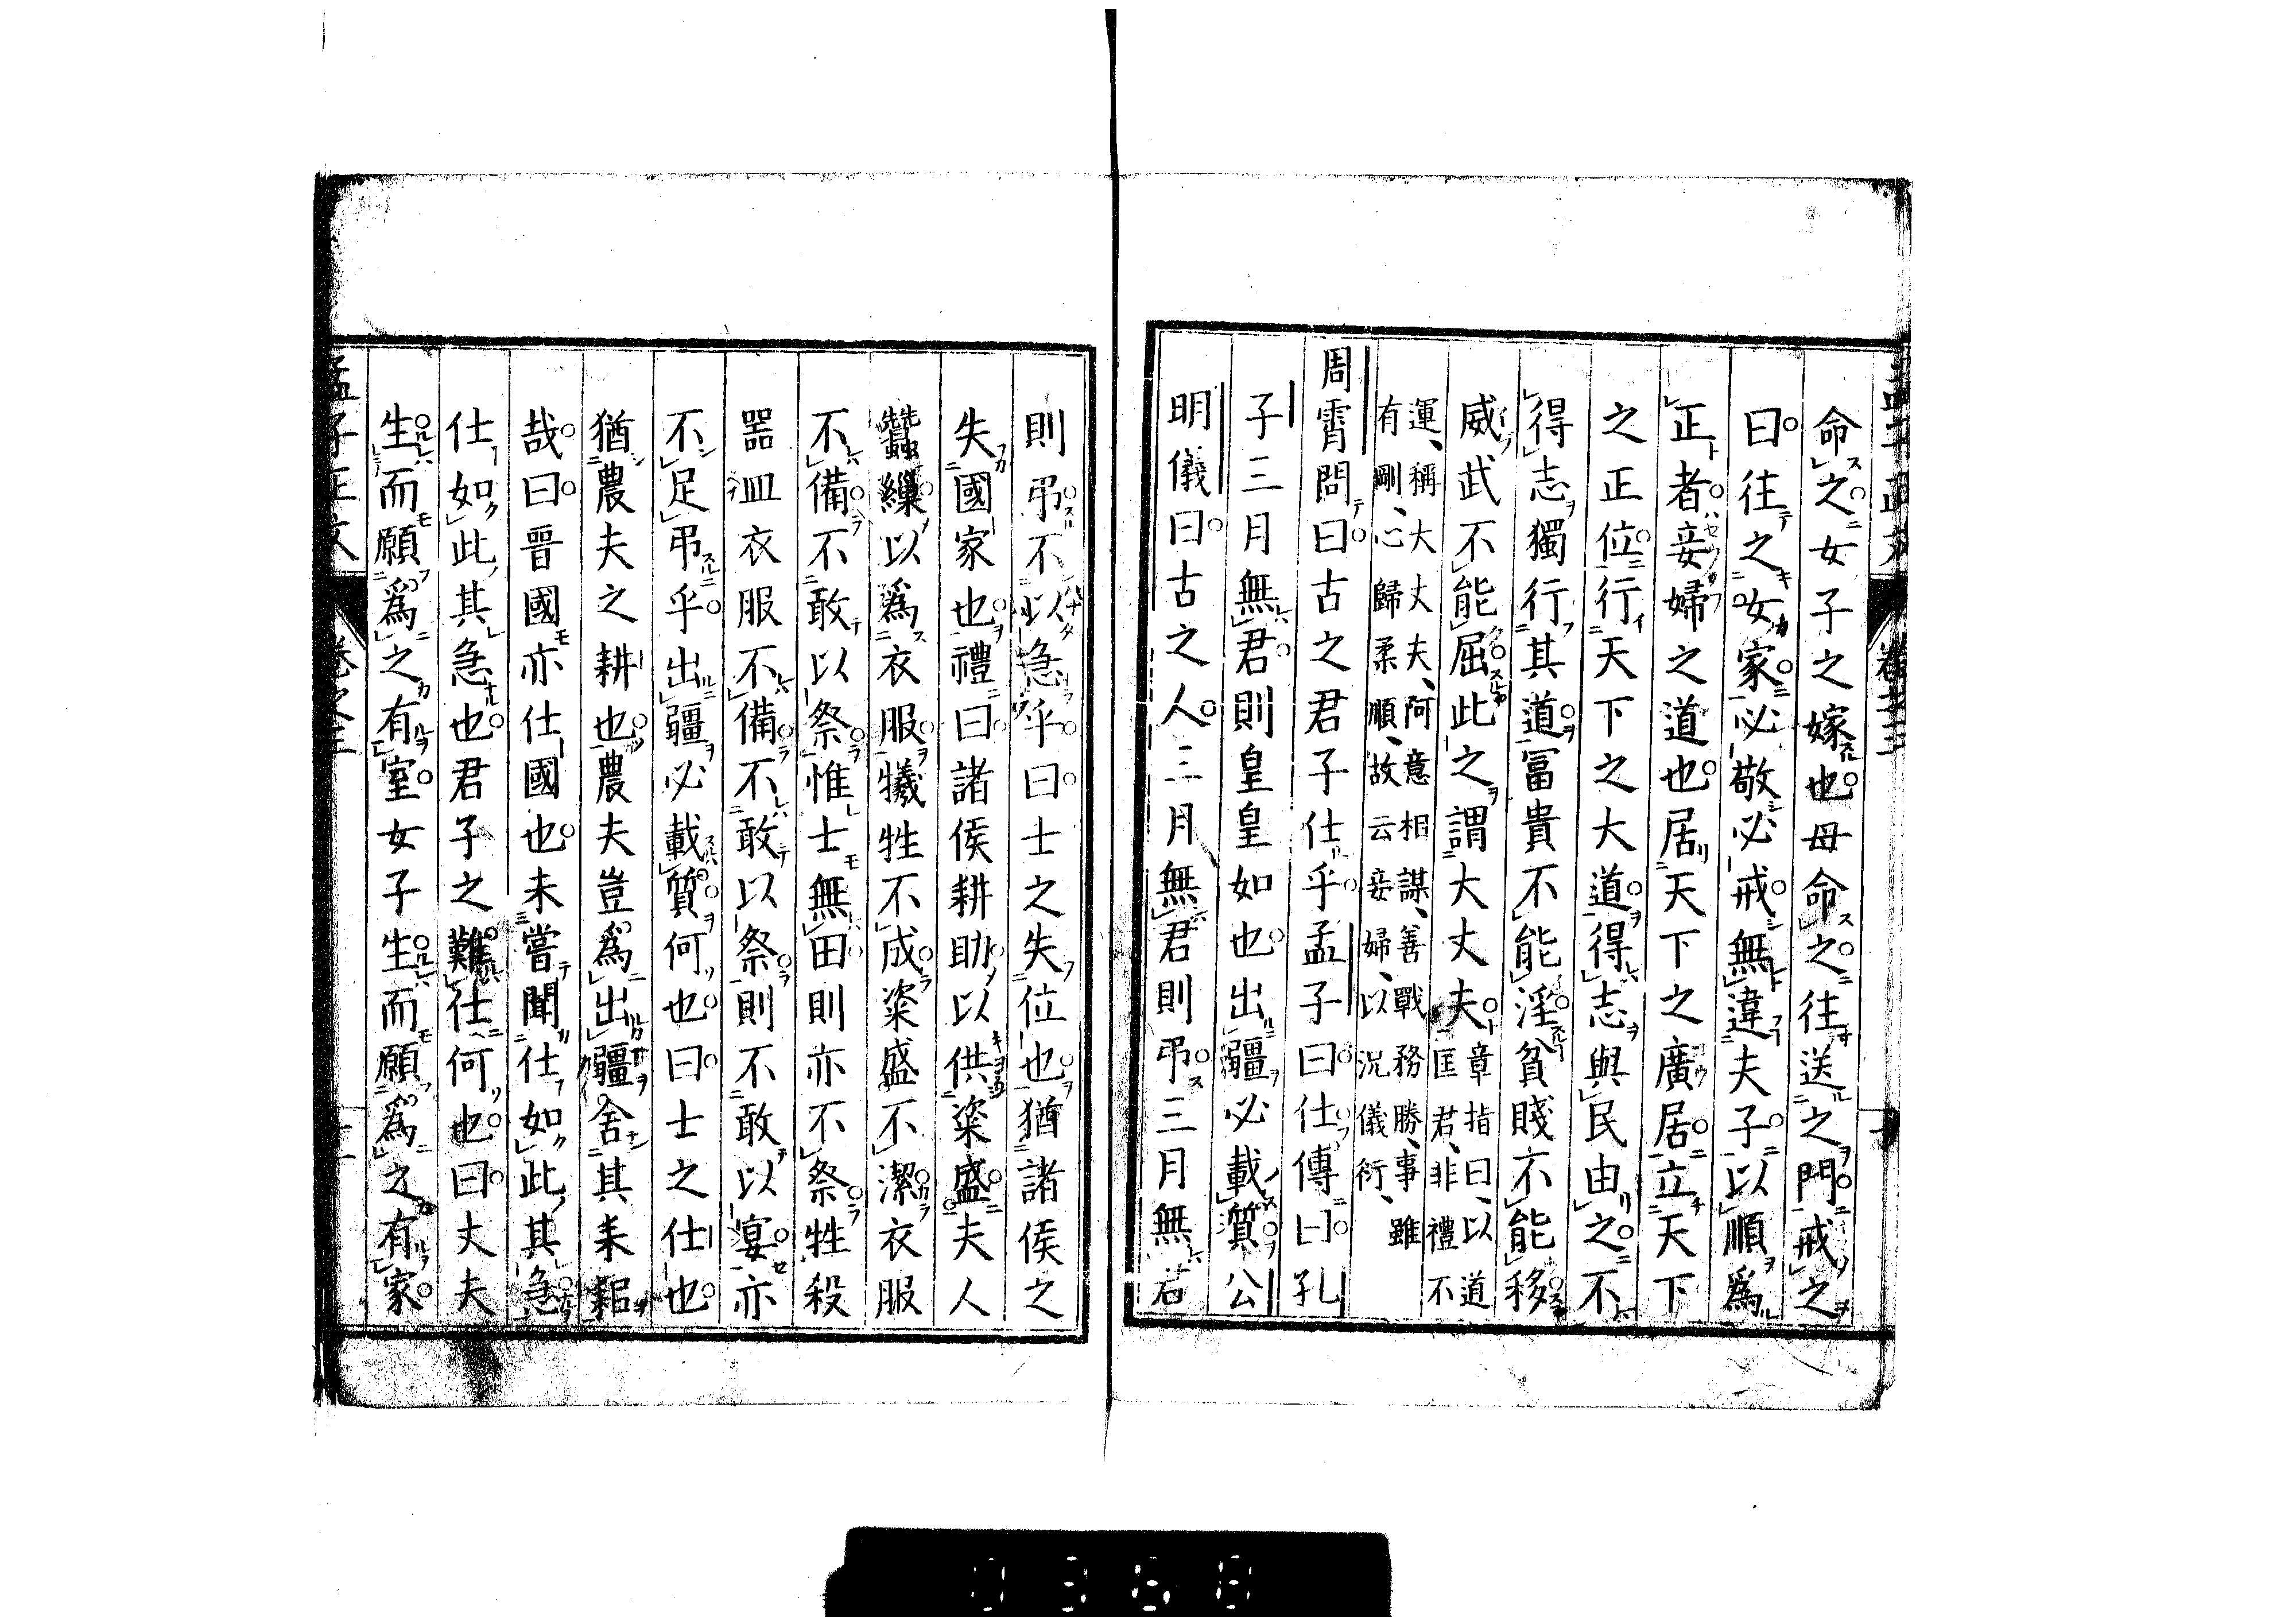 命之女子之嫁也母命之往送之門戒之
曰往之女家必敬必戒無違夫子以順爲
正者妾婦之道也居天下之廣居立天下
之正位行天下之大道得志與民由之不
得志獨行其道冨貴不能淫貧賤不能移
威武不能屈此之謂大丈夫
章指曰、以道
匡君、非禮不
運、稱大丈夫、阿意相謀、善戰務勝、事雖
有剛、心歸柔順、故云妾婦、以況儀衍、
周霄問曰古之君子仕乎孟子曰仕傳曰孔
子三月無君則皇皇如也出疆必載質公
明儀曰古之人三月無君則弔三月無君
則弔不以急乎曰士之失位也猶諸侯之
失國家也禮曰諸侯耕助以供粢盛夫人
蠶繅以爲衣服犧牲不成粢盛不潔衣服
不備不敢以祭惟士無田則亦不祭牲殺
器皿衣服不備不敢以祭則不敢以宴亦
不足弔乎出疆必載質何也曰士之仕也
猶農夫之耕也農夫豈爲出疆舍其耒耜
哉曰晉國亦仕國也未嘗聞仕如此其急
仕如此其急也君子之難仕何也曰丈夫
生而願爲之有室女子生而願爲之有家
孟子正文
卷之三
0368